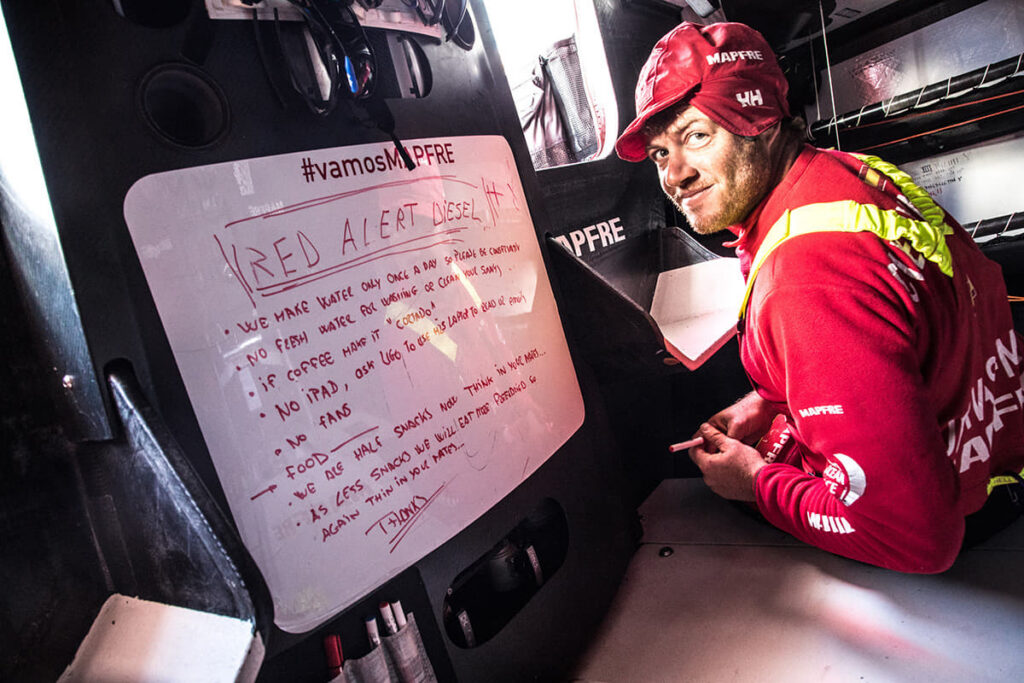 #vamosMAPFRE
RED ALERT DIESEL
• WE MAKE WATER ONLY ONCE A DAY SO PLEASE BE
• NO FRESH WATER FOR WASHING OR CLEAN YOUR
• IF COFFEE MAKE IT "CORTADO"
• NO IPAD, ASK UGO TO USE HIS LAPTOP TO READ OR
• NO FANS
→ FOOD
• WE HALF SNACKS NOW THINK IN YOUR
• AS LESS SNACKS WE WILL EAT MORE SO
AGAIN THIN IN YOUR MATES...
THANKS
MAPFRE
HH
MAPFRE
MAPFRE